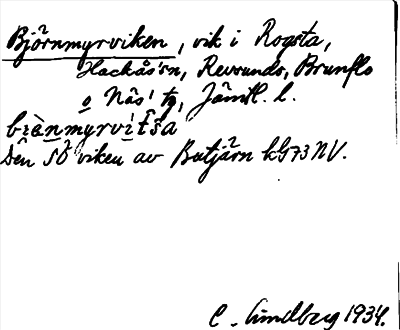 Björnmyrviken, vik i Rogsta,
Hackås sn, Revsunds, Brunflo
o Näs' tg, Jämtl. l.
bɪànmyrvit̂ŝa
Den sö viken av Butjärn kG73NV.
C. Lindberg 1934.